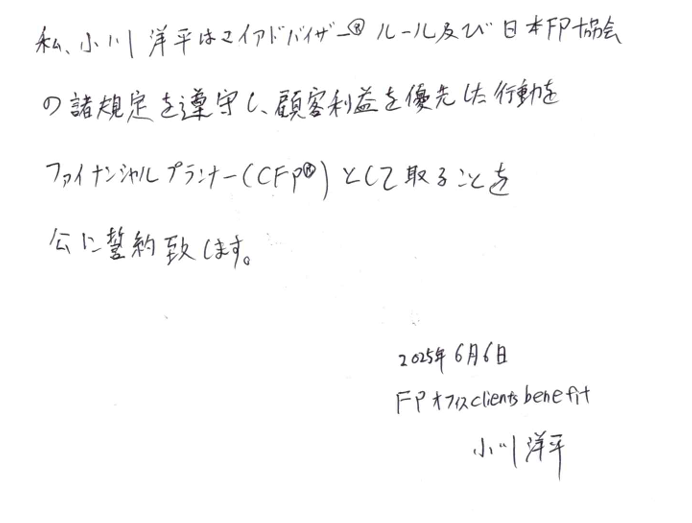 私、小川洋平はマイアドバイザー®ルール及び日本FP協会
の諸規定を遵守し、顧客利益を優先した行動を
ファイナンシャルプランナー(CFP®)として取ることを
公に誓約致します。
2025年6月6日
FPオフィスclients benefit
小川洋平